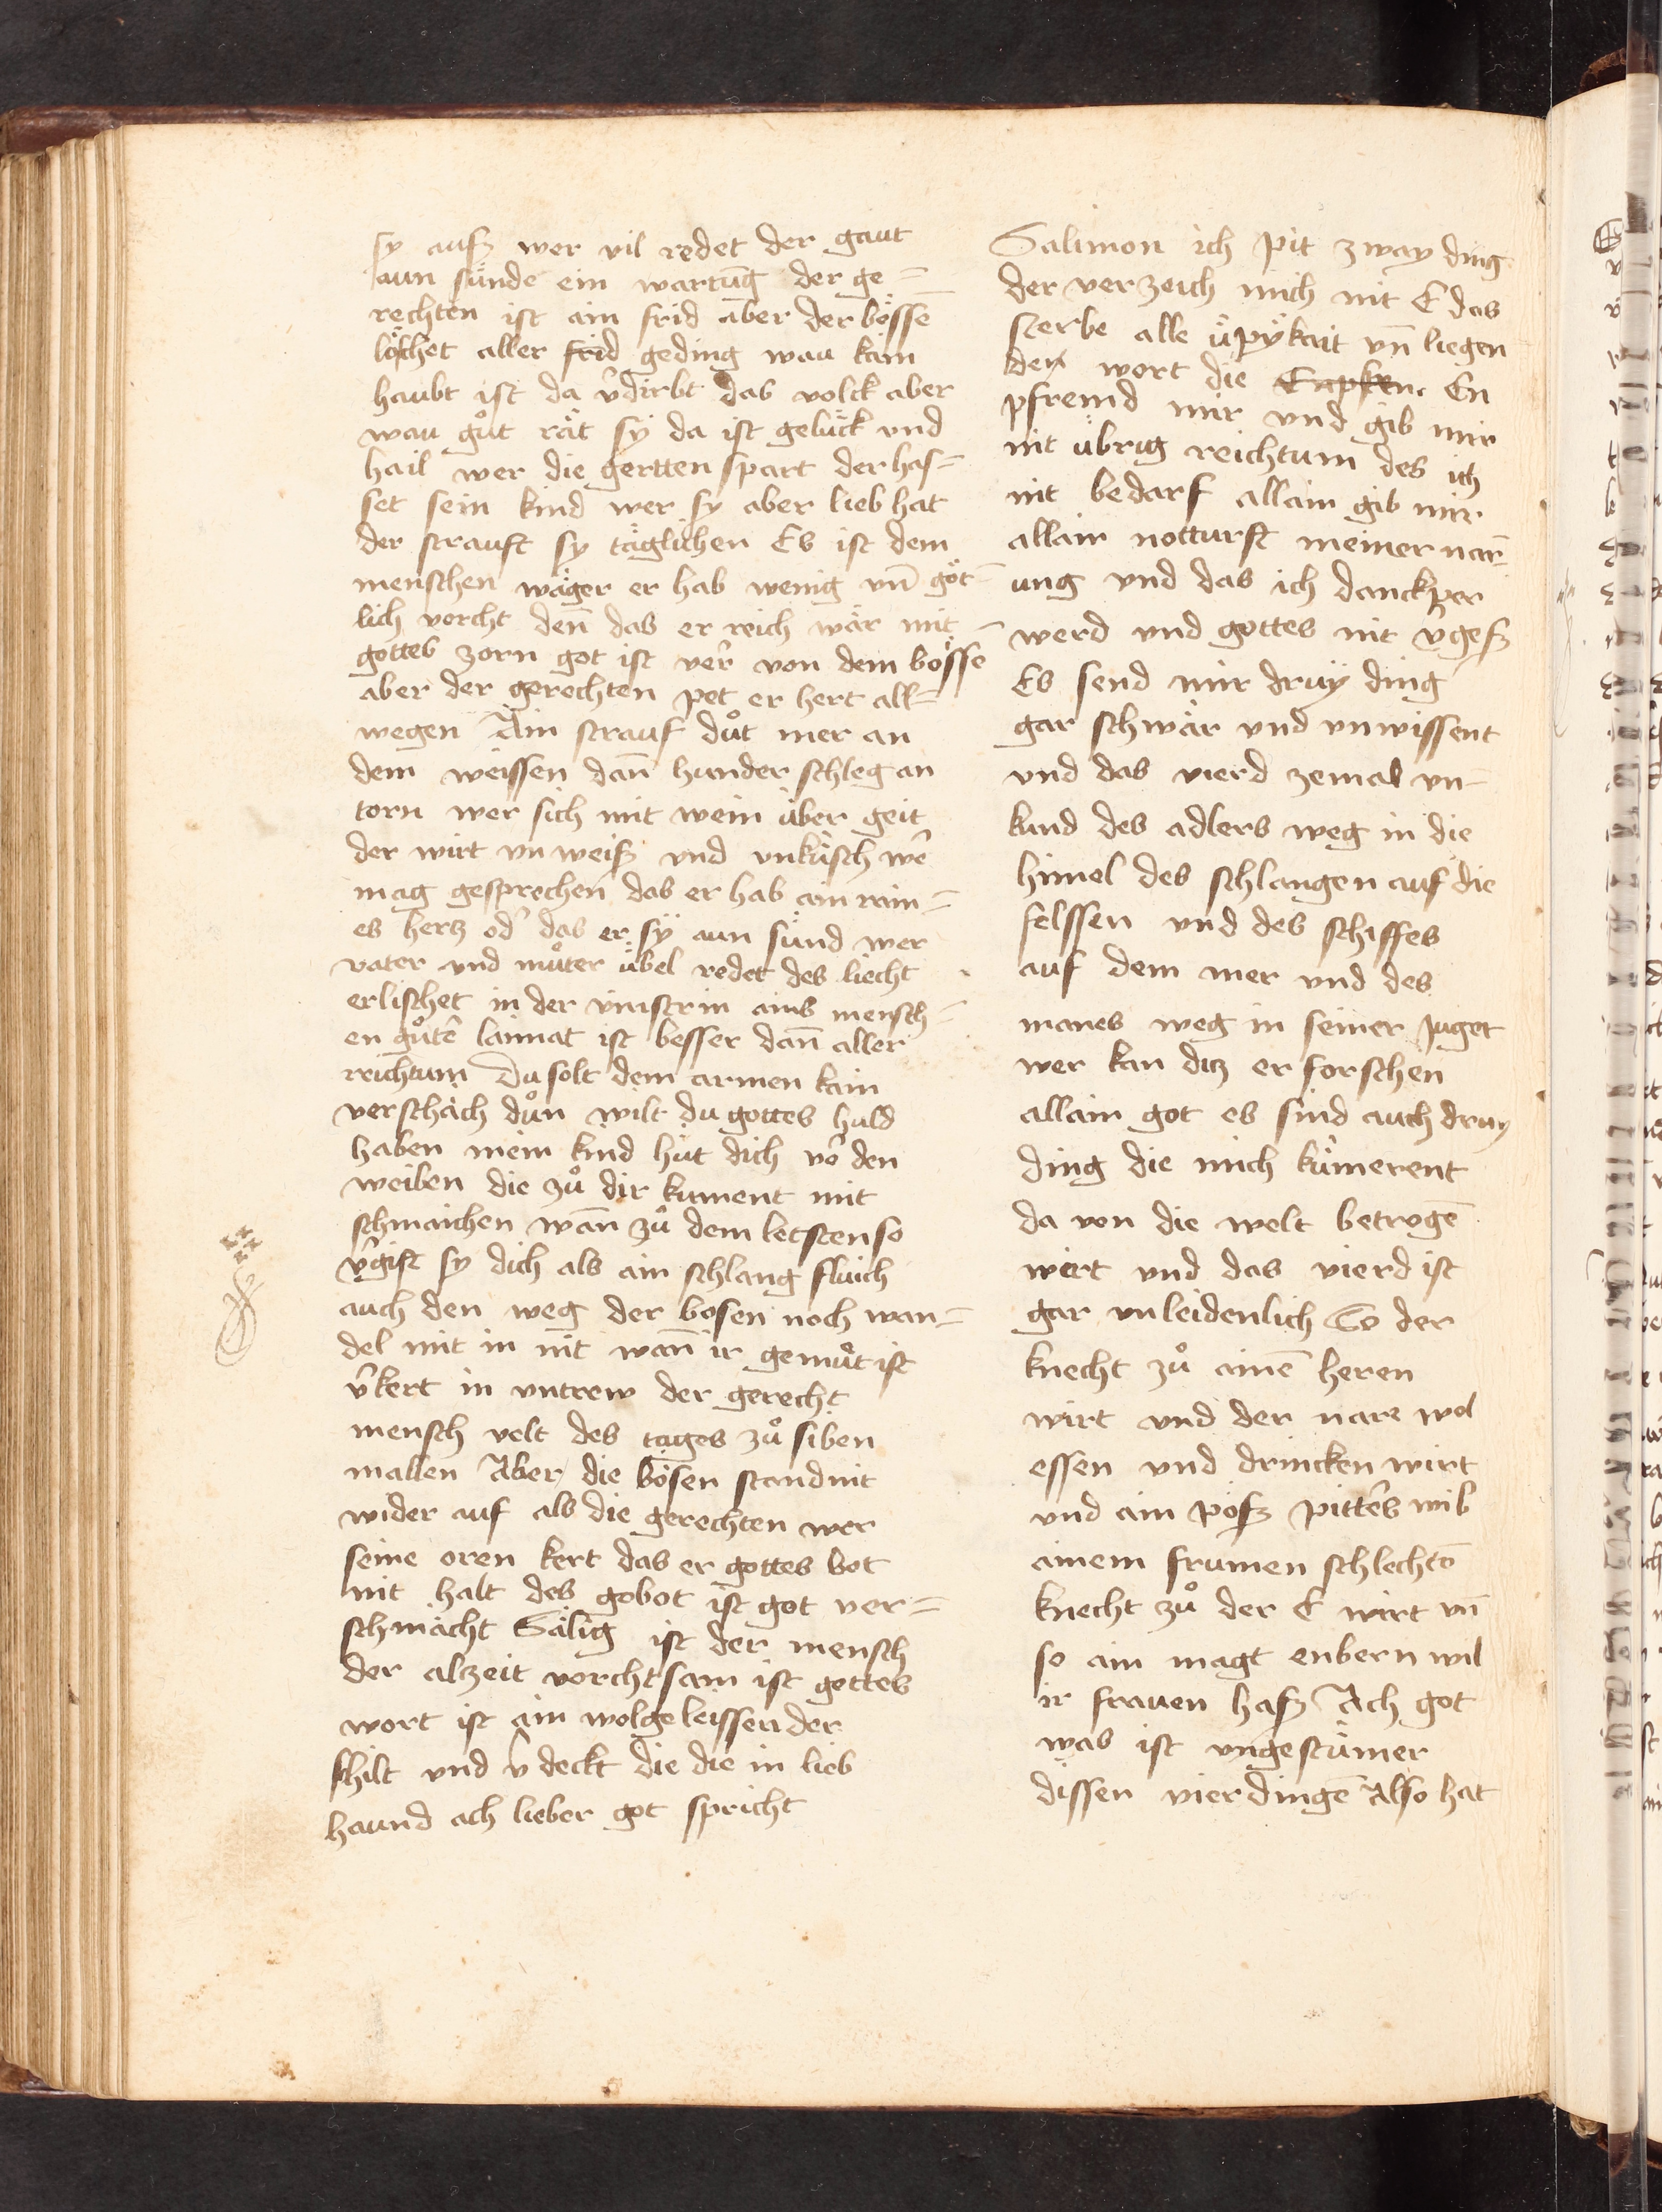 sy ausz wer vil redet der gaut
aun sünde ein wartūg der ge=
rechten ist ain frid aber der bösse
löschet aller frid geding wau kain
haubt ist da v̂dirbt das volck aber
wau gůt rät sÿ da ist gelück vnd
hail wer die gertten spart der has=
set sein kind wer sy aber lieb hat
der strauft sy täglichen Es ist dem
menschen wäger er hab wenig vn̄ göt=
lich vorcht den̄ das er reich wär mit
gottes zorn got ist ver̂ von dem bösse
aber der gerechten pet er hert all=
wegen Ain strauf důt mer an
dem weissen dan̄ hunder schleg an
torn wer sich mit wein über geit
der wirt vn weisz vnd vnkäsch wê
mag gesprechen das er hab ain rain=
es hertz od̂ das er sÿ aun sünd wer
vater vnd můter übel redet des liecht
erlischet in der vinstrin ains mensch=
en gůtē laimat ist besser dan̄ aller
reichtum Du solt dem armen kain
verschäch důn wilt du gottes huld
haben mein kind hüt dich vô den
weiben die zů dir kument mit
schmaichen wan̄ zů dem letsten so
v̂gift sy dich als ain schlang fluich
auch den weg der bosen noch wan=
del mit in nit wan̄ ir gemüt ist
v̂kert in vntrew der gerecht
mensch velt des tages zů siben
mallen Aber die bösen stand nit
wider auf als die gerechten wer
seine oren kert das er gottes bot
nit halt des gobot ist got ver=
schmächt Sälig ist der mensch
der alzeit vorchtsam ist gottes
wort ist ain wolgeleissender
schilt vnd v̂deckt die die in lieb
haund ach lieber got spricht
Salimon ich pit zway ding
der verzeich mich nit E das
sterbe alle üpÿkait vn̄ liegen
den wort die En
pfremd mir vnd gib mir
nit übrig reichtum des ich
nit bedarf allain gib mir
allain notturft meiner nar̄=
ung vnd das ich danckper
werd vnd gottes nit v̂gesz
Es send mir druÿ ding
gar schwär vnd vnwissent
vnd das vierd zemal vn=
kund des adlers weg in die
himel des schlangen auf die
felssen vnd des schiffes
auf dem mer vnd des
manes weg in seiner Juget
wer kan ditz erforschen
allain got es sind auch druy
ding die mich kümerent
da von die welt betrogē
wirt vnd das vierd ist
gar vnleidenlich So der
knecht zů ainē heren
wirt vnd der nare wol
essen vnd drincken wirt
vnd ain pösz pitters wib
ainem frumen schlechtē
knecht zů der E wirt vn̄
so ain magt enbern wil
ir frauen hasz Ach got
was ist vngestümer
dissen vier dingē Also hat